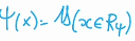 ψ(x) = 𝟙(x ∈ R_ψ)